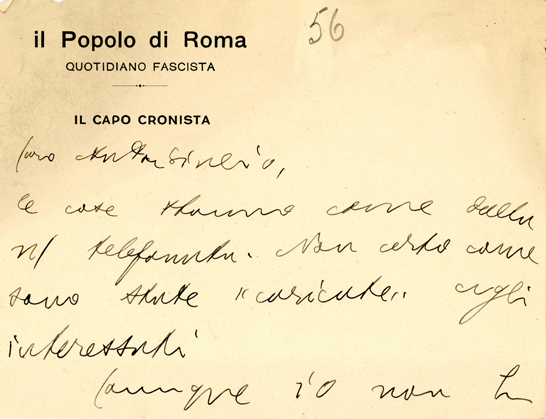 il Popolo di Roma
QUOTIDIANO FASCISTA
56
IL CAPO CRONISTA
Caro
le cose stanno come dalla
n/ telefonata. Non certo come
sono state "caricate" agli
interessati
Comunque io non